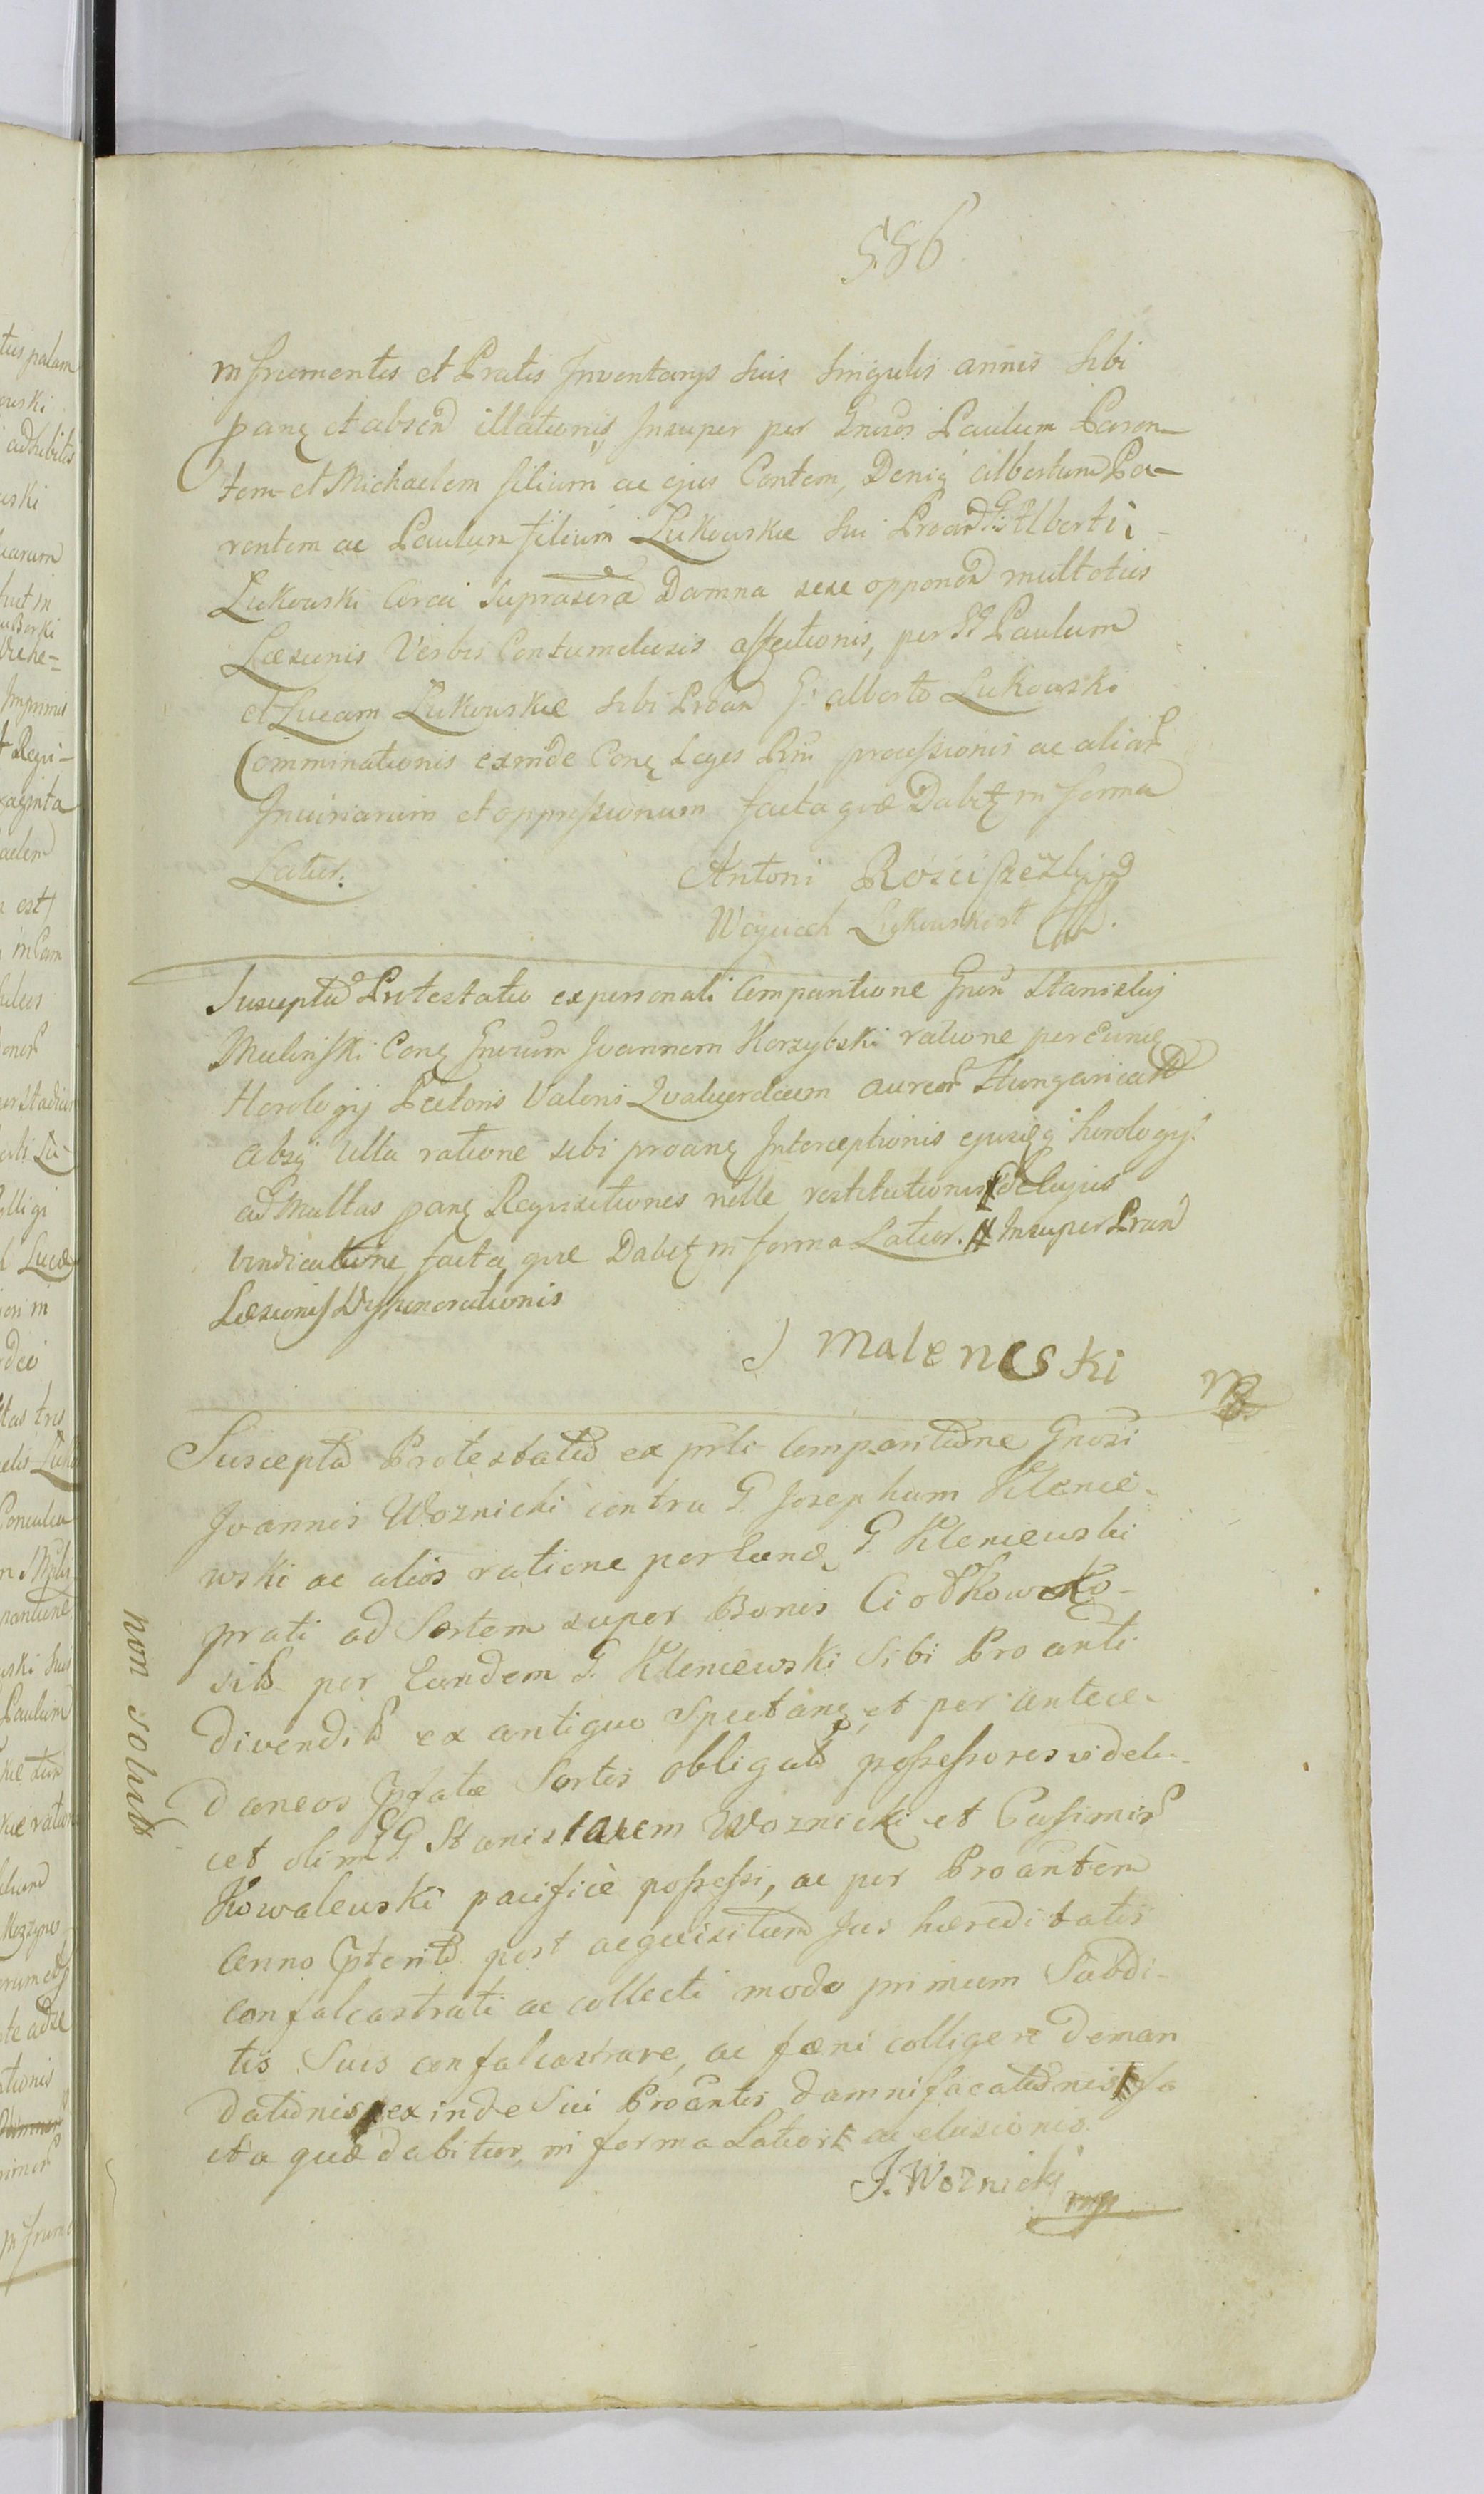 586
in frumentis et Pratis Inventarys suis singulis annis sibi
panẽ et absen̄d illationis, Insuper per Gnosos Paulum Paren-
tem et Michaelem filium ac ejus Contem, Deniq̃ Albertum Pa-
rentem ac Paulum filium Lukowskie sui Proan̄d G. Alberti
Lukowski Circa Suprascra Damna sese opponen̄d multoties
Læsionis Verbis Contumeliosis affectionis, per GG Paulum
et Lucam Lukowskie sibi Proan̄d G. Alberto Lukowski
Comminationis exinde Conẽ Leges Rni processionis ac aliar̃
Iniuriarum et oppressionum facta quæ Dabitz in forma
Latior.
Antoni Rościszewski
Woyciech Lukowski
Suscepta Protestatio ex personali Comparitione Gnosi Stanislaj
Malinski Conẽ Gnosum Joannem Korzybski ratione per eunde
Horologij Pectoris Valoris Quatuordecem aureor̃ Hungaricali
absq̃ ulla ratione sibi proanẽ Interceptionis ejusdẽq̃ horologij
ad Multas panẽ Requisitiones nelle restitutionis de cujus
vindicatione facta que Dabitz in forma Latior. # Insuper Pran̄d
Læsionis Dishonorationis
J Malenski
mp
Suscepta Protestatio ex prli Comparitione Gnosi
Joannis Woznicki contra G. Josephum Klenie-
wski ac alios ratione per Eundẽ G. Kleniewski
prati ad Sortem super Bonis Ciotkowko-
sitã per Eundem G. Kleniewski Sibi Pro anti
divendit ex antiquo Spectanẽ et per antece-
daneos Pfatæ Sortis obligato possessores videli-
cet olim GG Stanislaum Woznicki et Casimir
Kowalewski pacifice possessi, ac per Proantem
Anno Pterito post acquisitum Jus hæreditatis
confalcastrati ac collecti modo primum Subdi-
tis Suis confalcastrare, ac fæni colligere deman
dationis exinde Sui Proantis damnificationis fa
cta quæ dabitur in forma Latiori ac elusionis
J. Woznicki mp
non solut